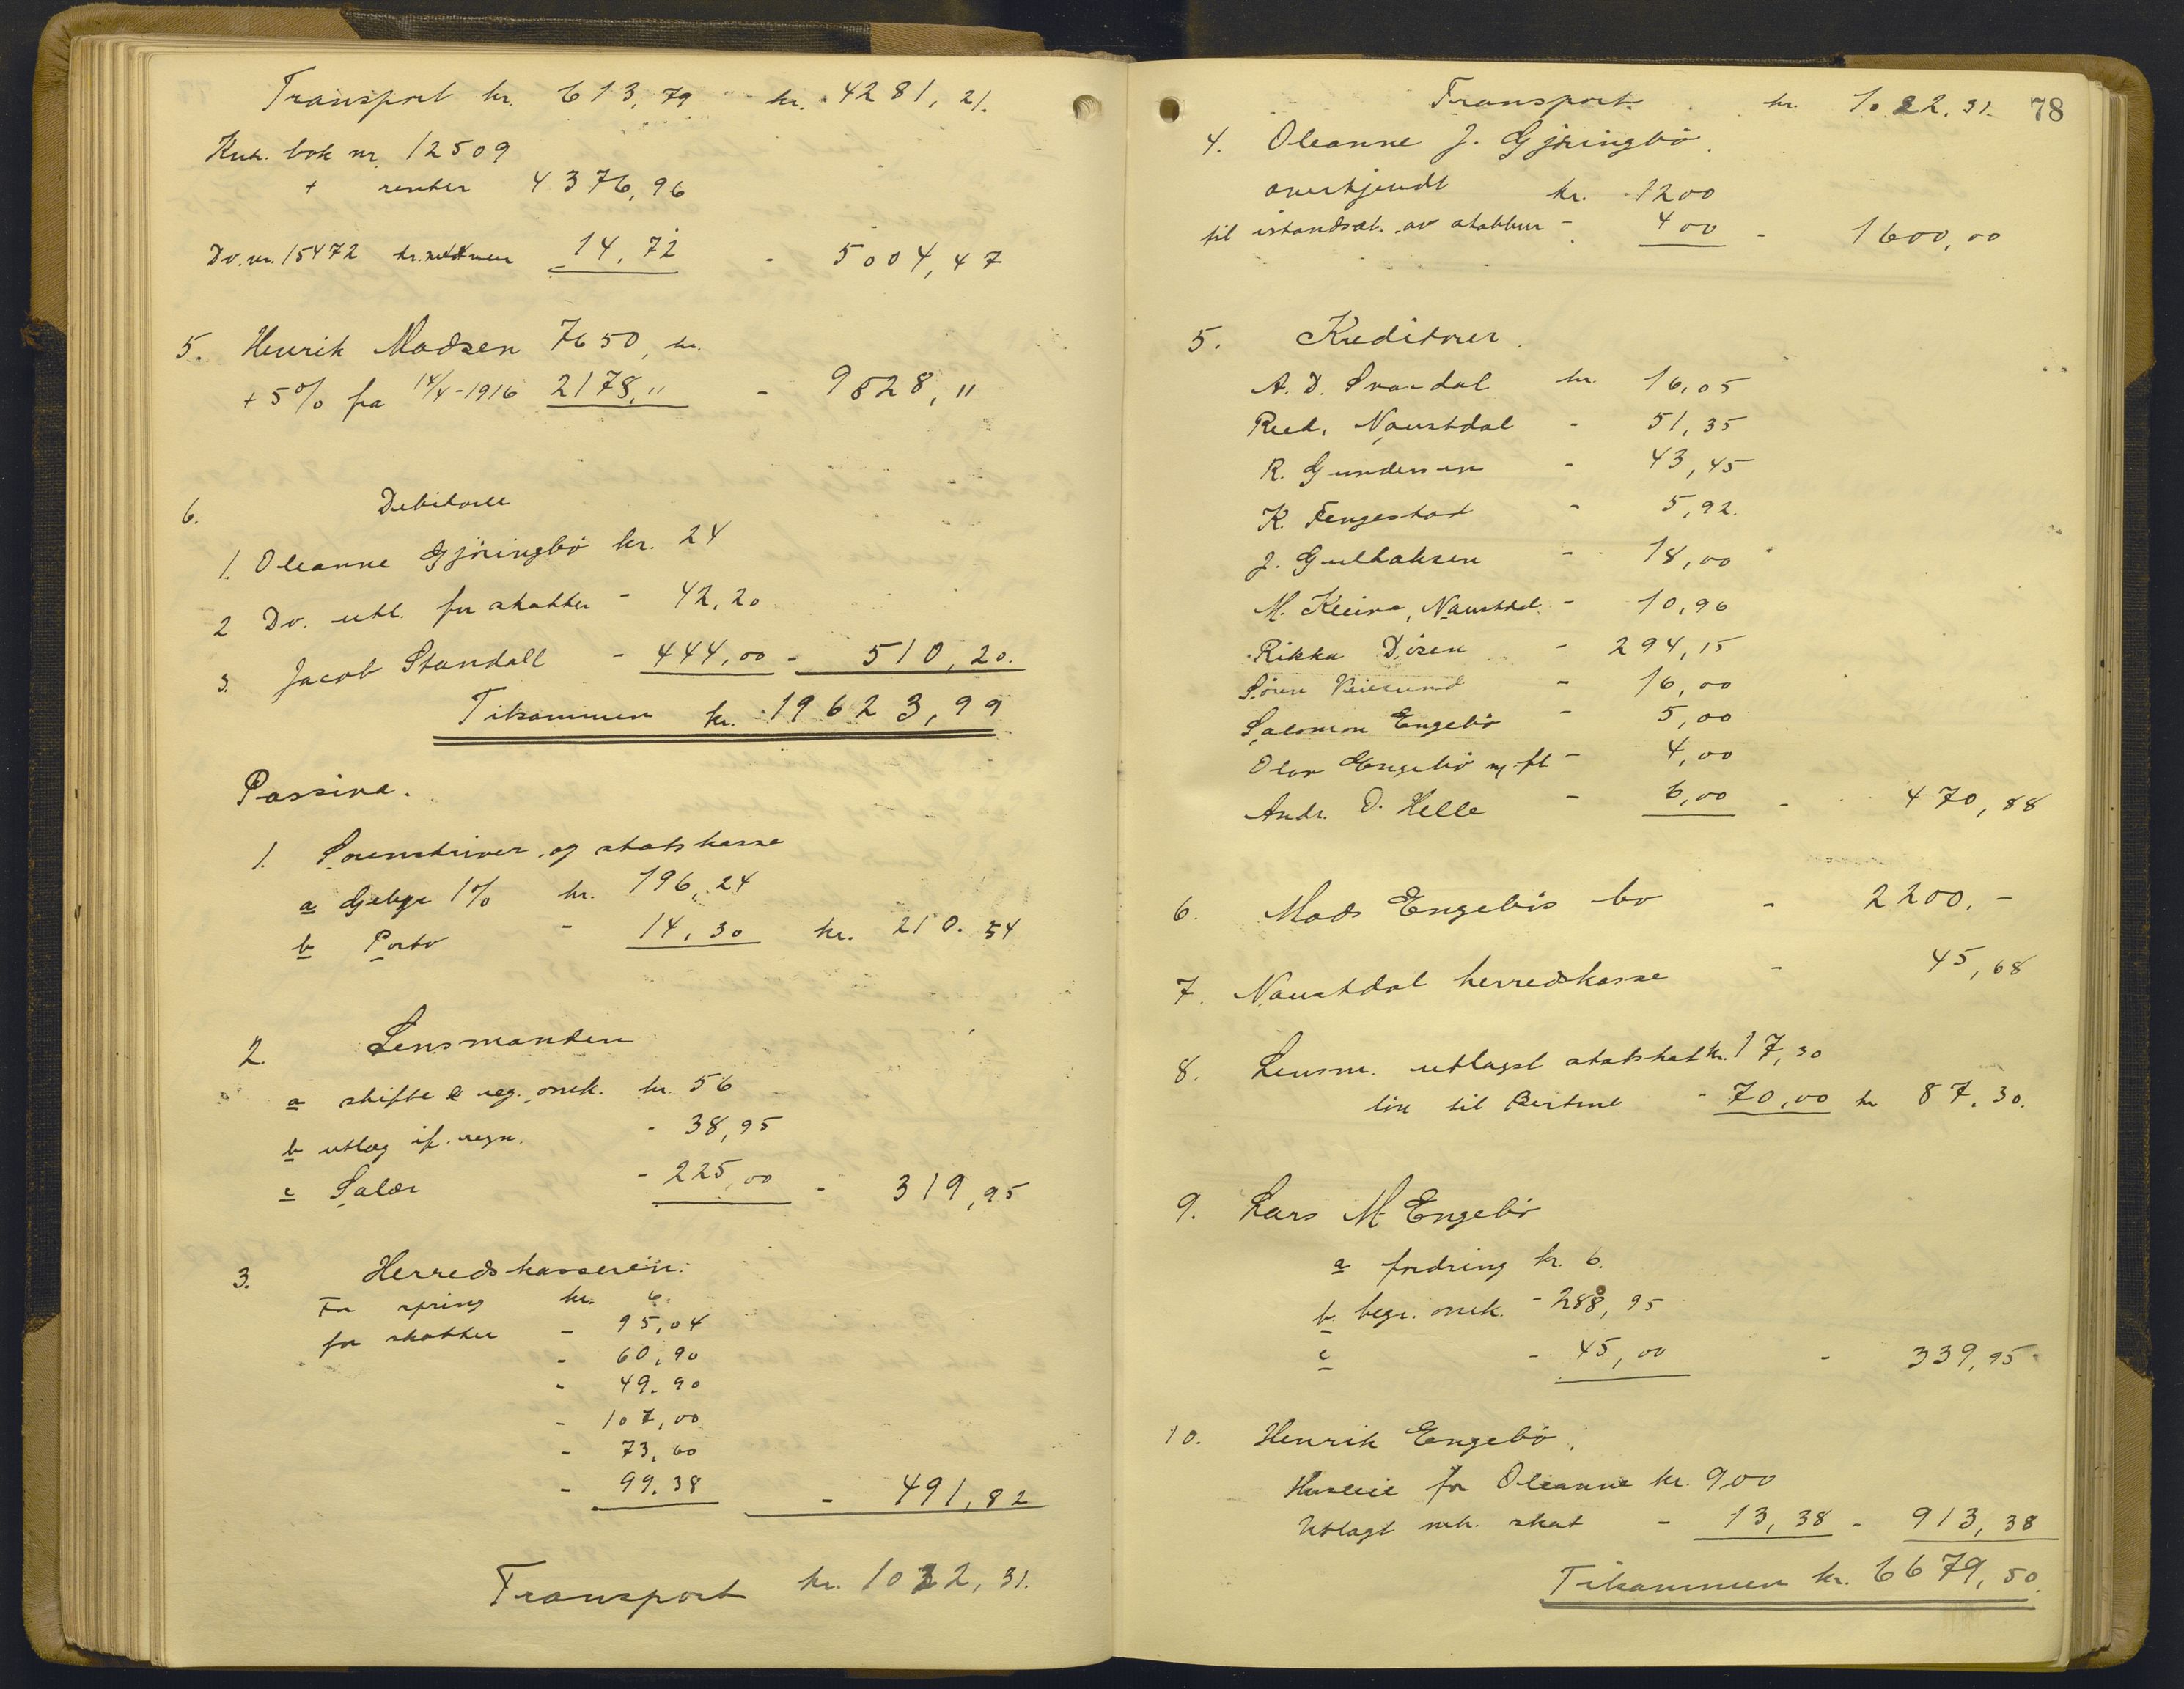 Transport kr. 613,79 kr. 4281,21.
Kntr. bok nr. 12509
+ renter 4376,96
Do. nr. 15472 kr. 14,72 - 5004,47
5. Henrik Madsen 7650, kr.
+ 5% fra 14/4-1916 2178,„ - 9828,„
6. Debitorer
1. Oleanne Gjøringbø kr. 24
2 Do. utl. for skatter - 42,20
3. Jacob Standall - 444,00 - 510,20.
Tilsammen kr. 19623,99
Passiva.
1. Sorenskriver og statskasse
a Gebyr 1% kr. 196,24
b Porto - 14,30 kr. 210.54
2. Lensmanden
a skifte & reg. omk. kr. 56
b utlæg if. regn. - 38,95
c Salær - 225,00 - 319,95
3. Herredskasseren:
For spring kr. 6.
for skatter - 95,04
- 60,90
- 49.90
- 107,00
- 73,60
- 99.38 - 491,82
Transport kr. 1022,31.
Transport kr. 1022,31. 78
4. Oleanne J. Gjøringbø.
overkjendt kr. 1200
til istandsæt. av stabbur - 400 - 1600,00
5. Kreditorer.
A. D. Svardal kr. 16,05
Red. Naustdal - 51,35
R. Gundersen - 43,45
K. Fengestad - 5,92.
J. Gulhaksen - 18,00
M. Kleiva, Naustdal - 10,96
Rikka Døsen - 294,15
Søren Veiesund - 16,00
Salomon Engebø - 5,00
Olav Engebø og fl - 4,00
Andr. O. Helle - 6,00 - 470,88
6. Mads Engebøs bo - 2200.-
7. Naustdal herredskasse - 45,68
8. Lensm. utlagt statskat kr. 17,30
løn til Bertine - 70,00 kr 87.30.
9. Lars M. Engebø
a fordring kr. 6.
b. begr. omk. - 288,95
c - 45,00 - 339,95
10. Henrik Engebø.
Husleie for Oleanne kr. 900
Utlagt skat - 13,38 - 913,38
Tilsammen kr. 6679,50.